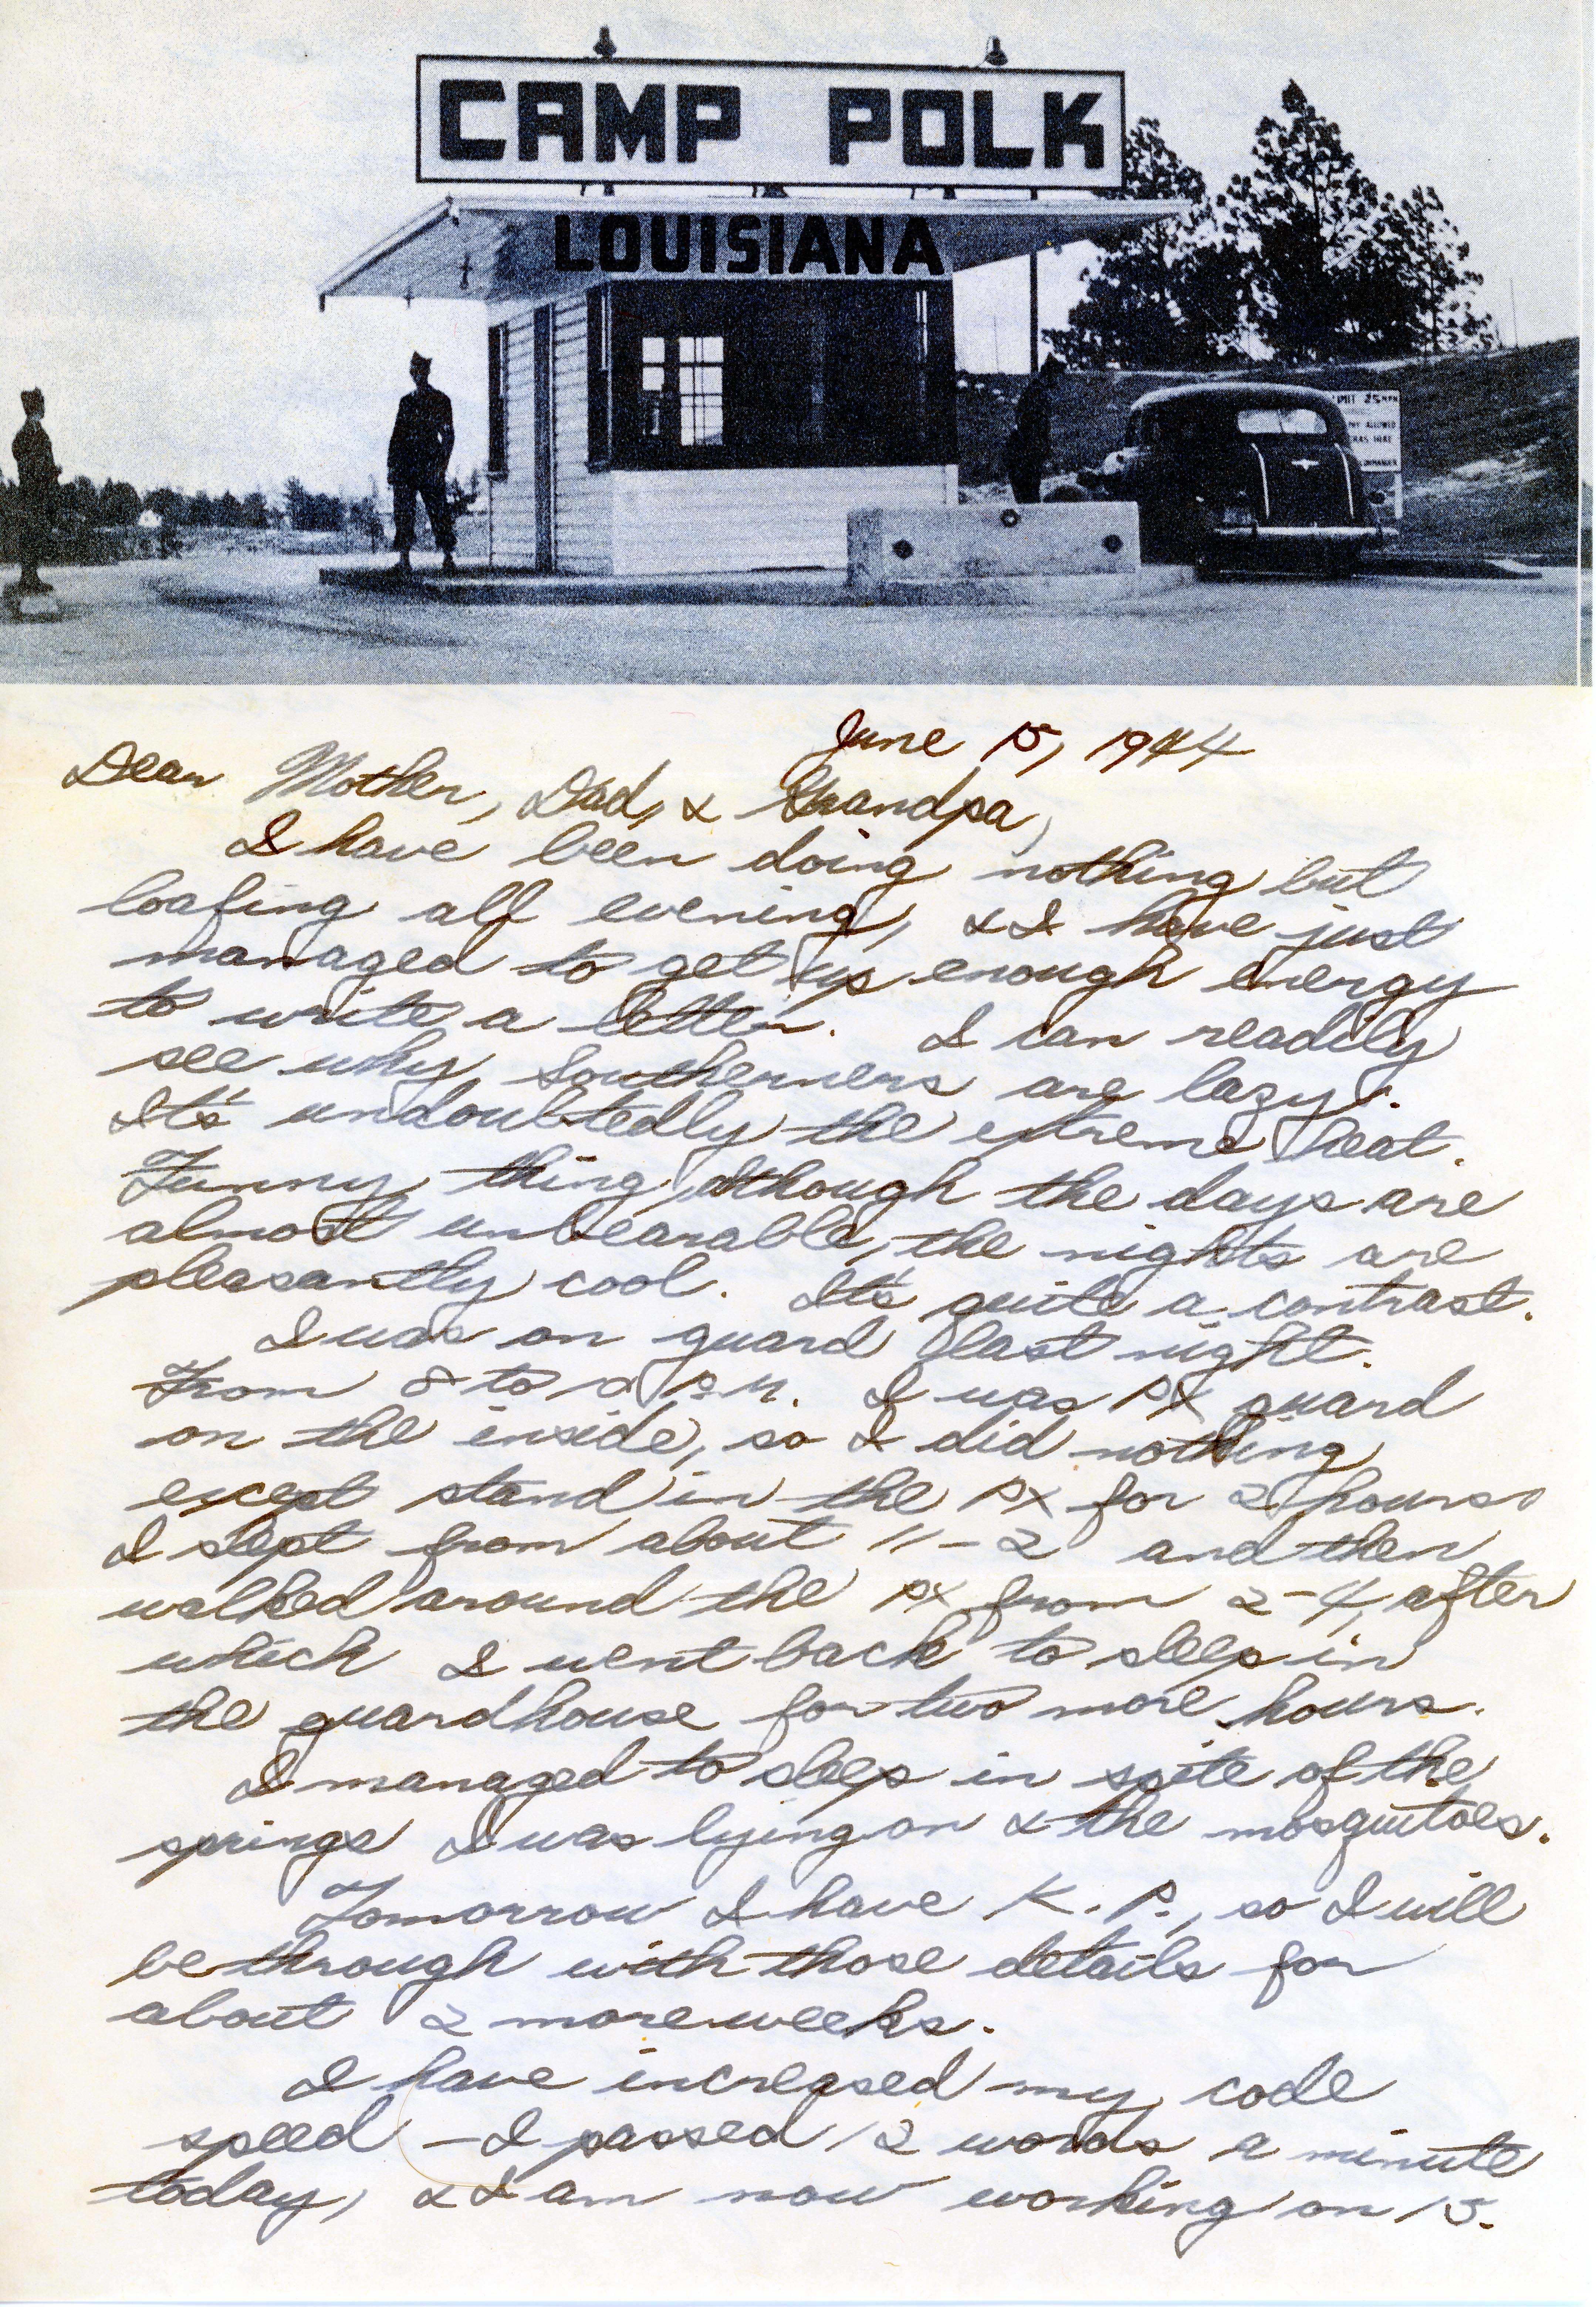 CAMP POLK
LOUISIANA
LIMIT 25 MPH
June 15, 1944
Dear Mother, Dad, & Grandpa,
I have been doing nothing but
loafing all evening, & I have just
managed to get up enough energy
to write a letter. I can readily
see why Southerners are lazy.
It's undoubtedly the extreme heat.
Funny thing, although the days are
almost unbearable, the nights are
pleasantly cool. It's quite a contrast.
I was on guard last night.
From 8 to 10 P.M. I was PX guard
on the inside, so I did nothing
except stand in the PX for 2 hours.
I slept from about 11-2 and then
walked around the PX from 2-4, after
which I went back to sleep in
the guardhouse for two more hours.
I managed to sleep in spite of the
springs I was lying on & the mosquitoes.
Tomorrow I have K.P., so I will
be through with those details for
about 2 more weeks.
I have increased my code
speed - I passed 12 words a minute
today, & I am now working on 15.